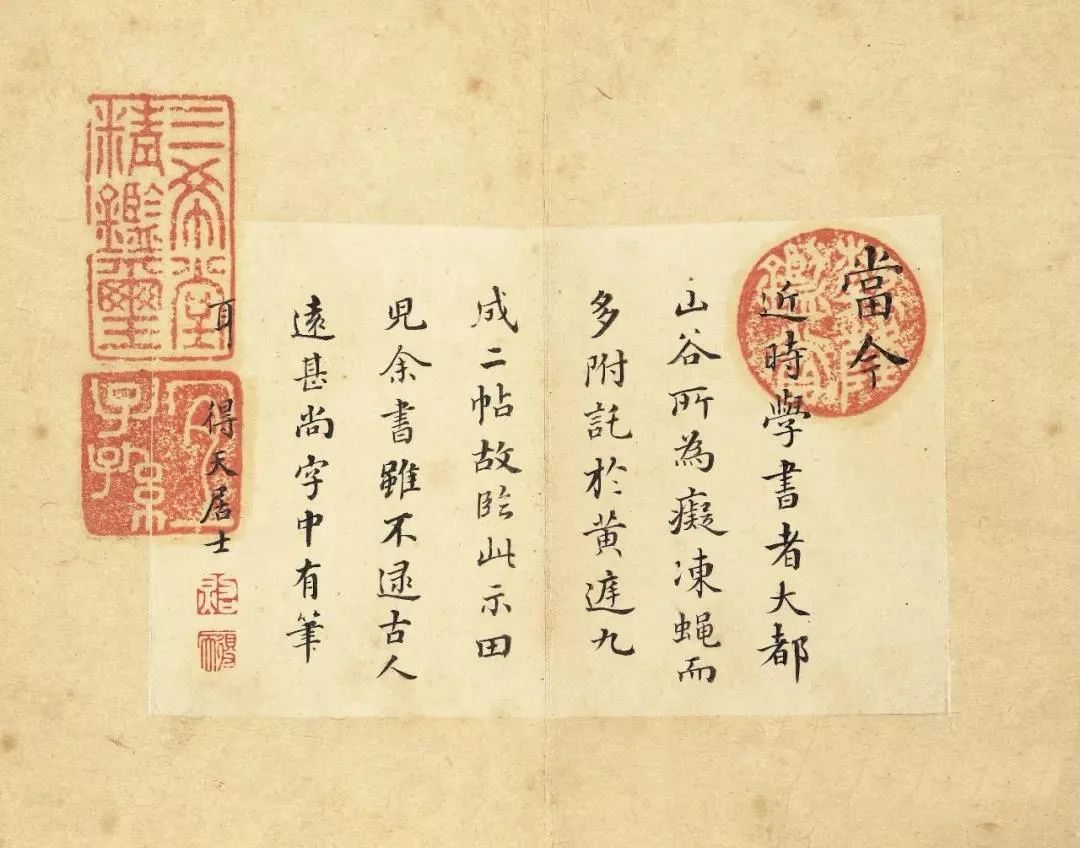 當今
近時學書者大都
山谷所為癡凍蠅而
多附託於黃庭九
成二帖故臨此示田
兒余書雖不逮古人
遠甚尚字中有筆
耳 得天居士
乾隆鑑賞
三希堂
精鑑璽
宜子孫